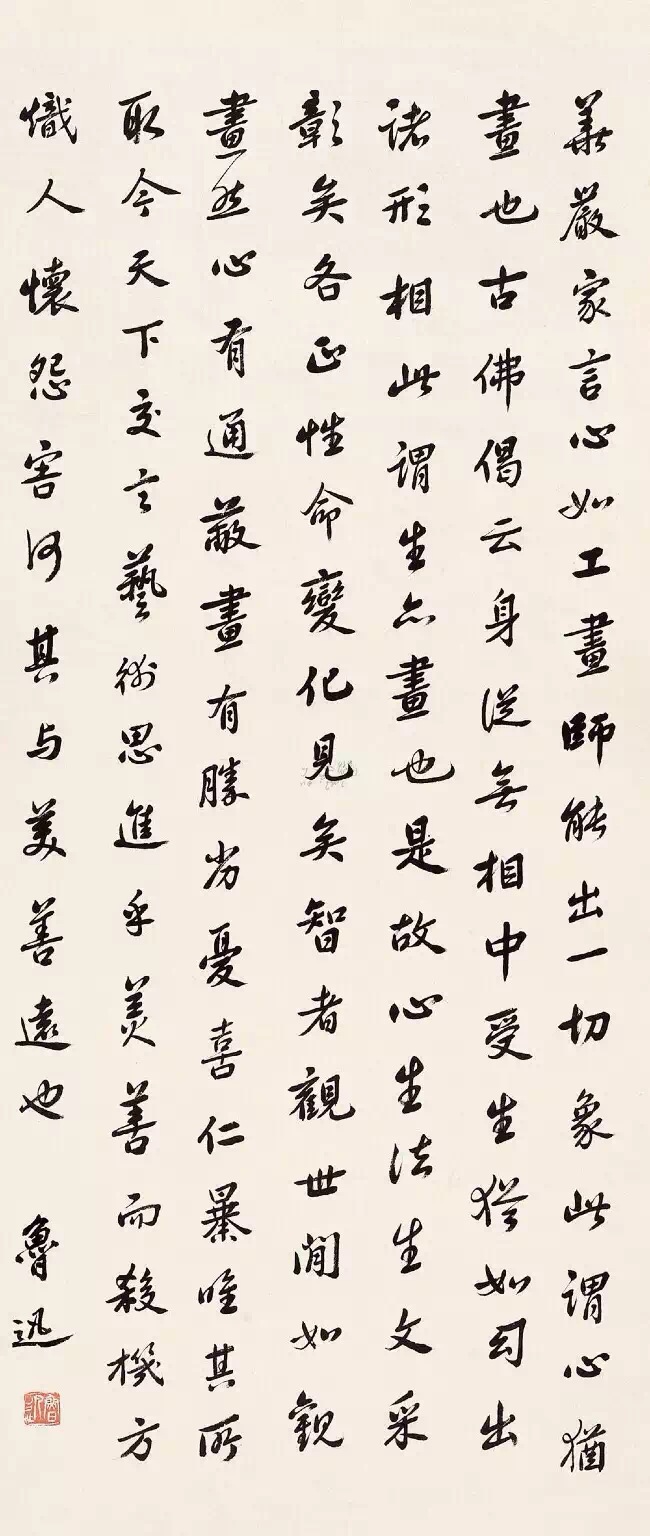 華嚴家言心如工畫師能出一切象此謂心猶
畫也古佛偈云身從無相中受生猶如幻出
諸形相此謂生亦畫也是故心生法生文采
彰矣各正性命變化見矣智者觀世間如觀
畫然心有通蔽畫有勝劣憂喜仁暴唯其所
取今天下交言藝術思進乎美善而殺機方
熾人懷怨害何其與美善遠也
魯迅